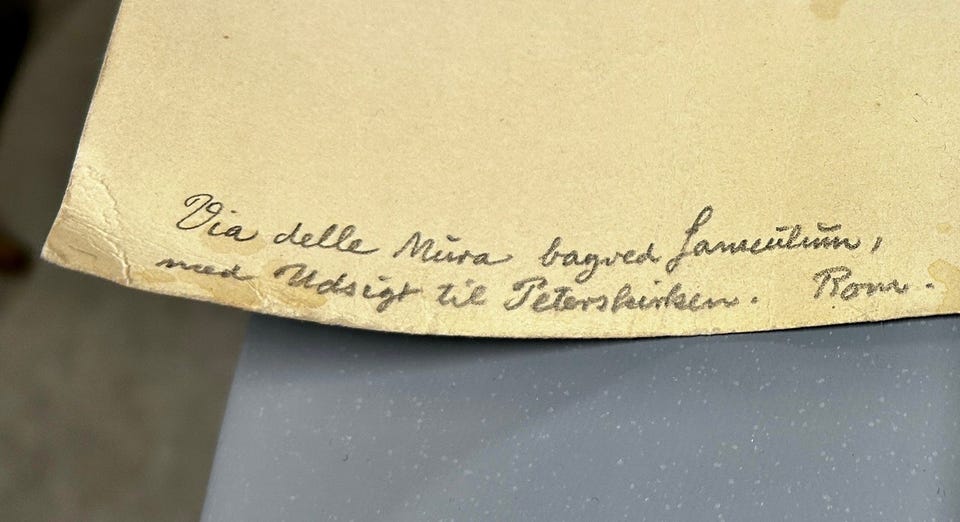 Via delle Mura bagved Janiculum,
med Udsigt til Peterskirken. Rom.